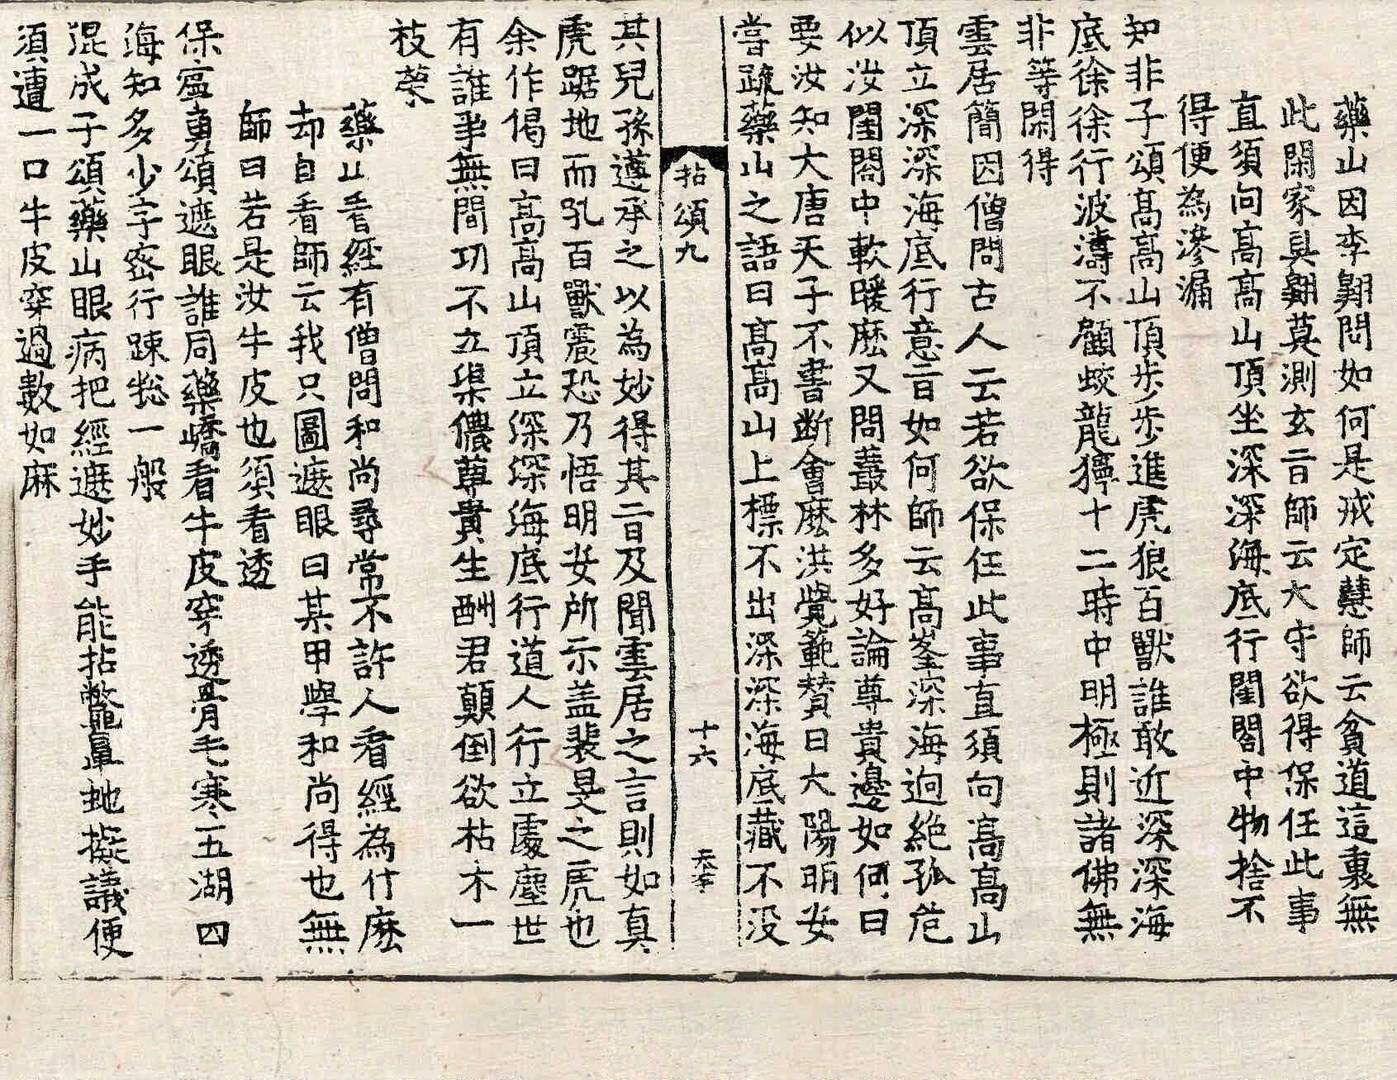 藥山因李翺問如何是戒定慧師云貧道這裏無
此閑家具翺莫測玄旨師云大守欲得保任此事
直須向高高山頂坐深深海底行閨閤中物捨不
得便為滲漏
知非子頌高高山頂步步進虎狼百獸誰敢近深深海
底徐徐行波濤不顧蛟龍獰十二時中明極則諸佛無
非等閑得
雲居簡因僧問古人云若欲保任此事直須向高高山
頂立深深海底行意旨如何師云高峯深海逈絶孤危
似汝閨閤中軟暖麽又問叢林多好論尊貴邊如何曰
要汝知大唐天子不書斷會麽洪覺範賛曰大陽明安
嘗䟽藥山之語曰高高山上標不出深深海底藏不没
拈頌九
十六
其兒孫遵承之以為妙得其旨及聞雲居之言則如真
虎踞地而吼百獸震恐乃悟明安所示盖裴旻之虎也
余作偈曰高高山頂立深深海底行道人行立處塵世
有誰爭無間功不立渠儂尊貴生酬君顛倒欲枯木一
枝榮
藥山看經有僧問和尚尋常不許人看經為什麽
却自看師云我只圖遮眼曰某甲學和尚得也無
師曰若是汝牛皮也須看透
保寧勇頌遮眼誰同藥嶠看牛皮穿透骨毛寒五湖四
海知多少字密行踈惣一般
混成子頌藥山眼病把經遮妙手能拈鼈鼻虵擬議便
須遭一口牛皮穿過數如麻